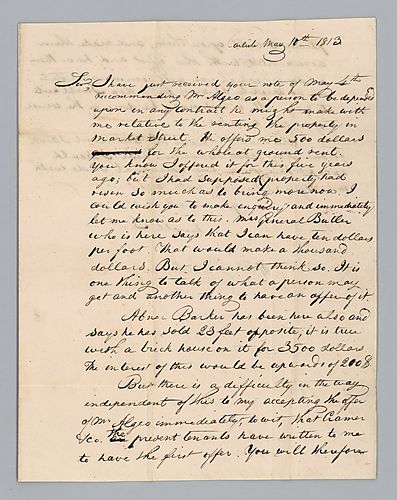 Carlisle May 10th 1813
Sir I have just received your note of May 4th
recommending Mr Algeo as a person to be depended
upon in any contract he might make with
me relative to the renting the property in
Market Street. He offers me 500 dollars
for the whole at ground rent
You know I offered it for this five years
ago; but I had supposed property had
risen so much as to bring more now. I
could wish you to make enquiry and immediately
let me know as to this. Mrs General Butler
who is here says that I can have ten dollars
per foot. That would make a thousand
dollars. But I cannot think so. It is
one thing to talk of what a person may
get and another thing to have an offer of it.
Abner Barker has been here also and
says he has sold 23 feet opposite, it is true
with a brick house on it for 3500 dollars
the interest of this would be upwards of 200$.
But there is a difficulty in the way
independent of this to my accepting the offer
of Mr Algeo immediately; to wit, that Cramer
&co. the present tenants have written to me
to have the first offer. You will therefore